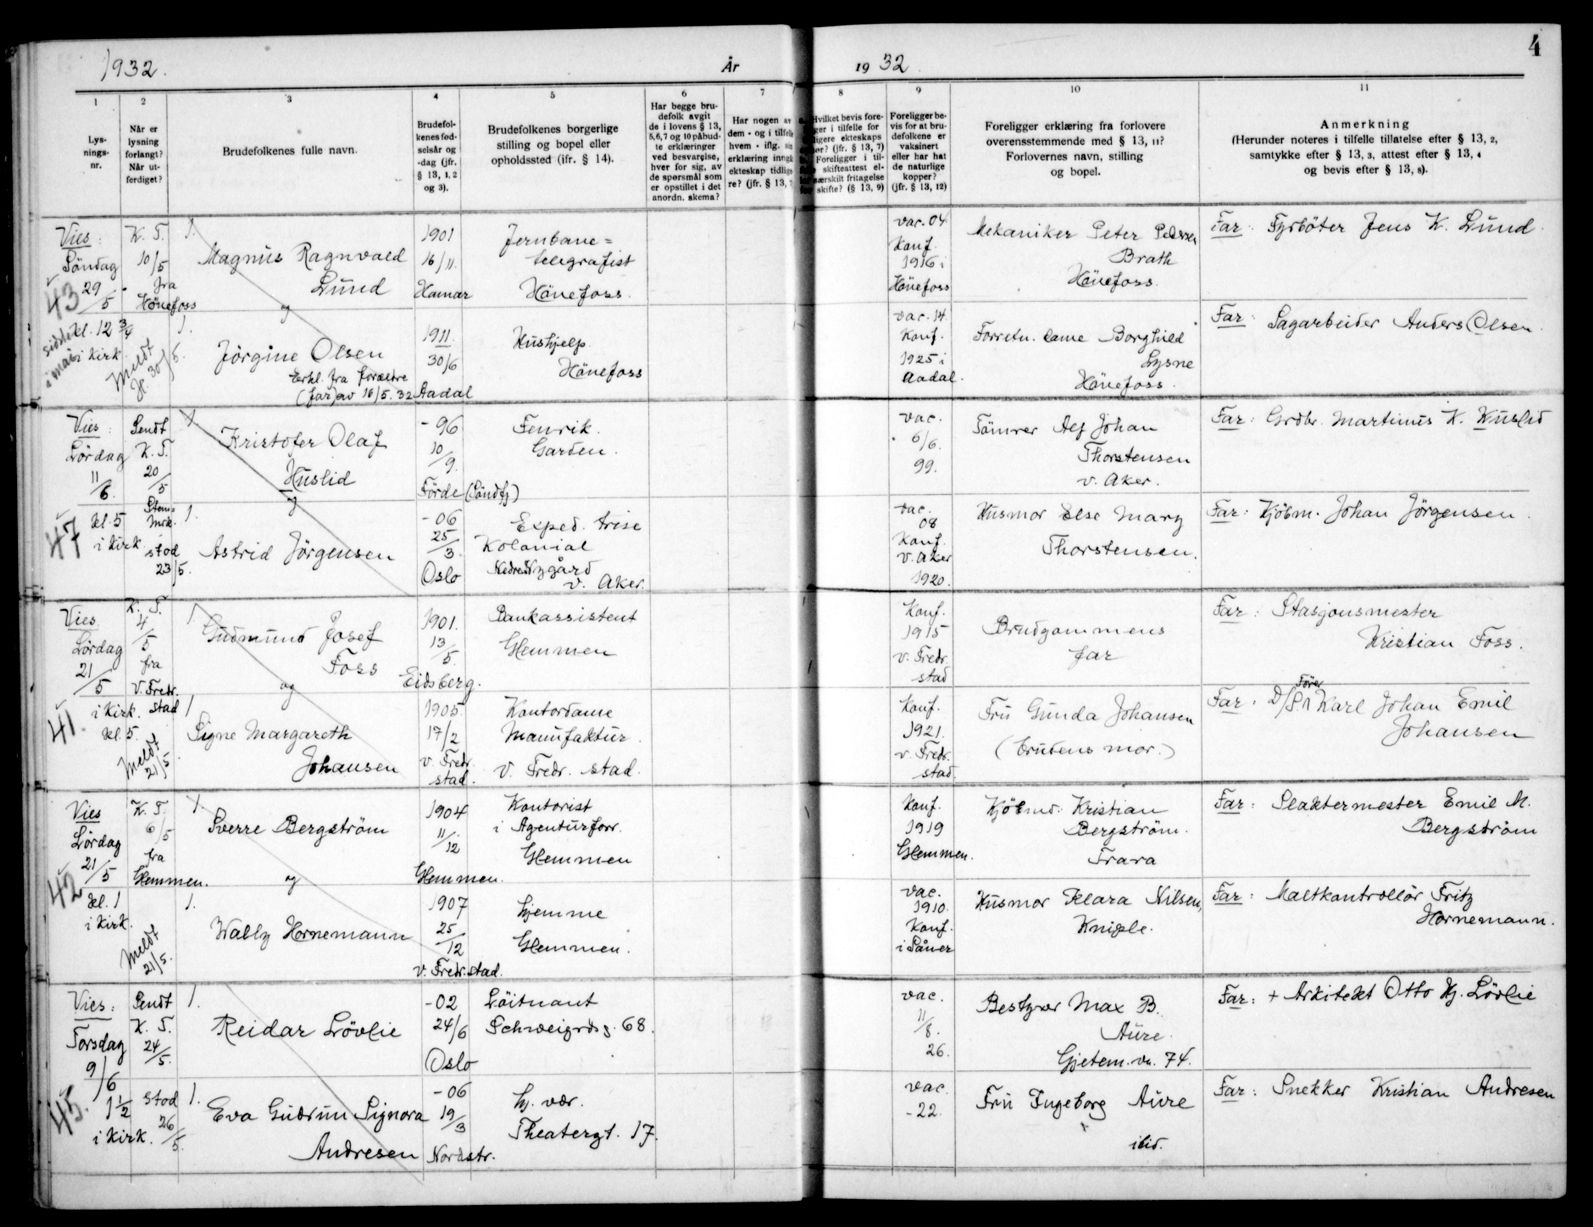 1932.
År
19 32
4
1
2
3
4
5
6
7
8
9
10
11
Lys-
nings-
nr.
Når er
lysning
forlangt?
Når ut-
ferdiget?
Brudefolkenes fulle navn.
Brudefol-
kenes fød-
selsår og
-dag (jfr.
§ 13, 1, 2
og 3).
Brudefolkenes borgerlige
stilling og bopel eller
opholdssted (ifr. § 14).
Har begge bru-
defolk avgit
de i lovens § 13,
5, 6, 7 og 10 påbud-
te erklæringer
ved besvarelse,
hver for sig, av
de spørsmål som
er opstillet i det
anordn. skema?
Har nogen av
dem - og i tilfelle
hvem - iflg.
erklæring inngått
ekteskap tidlige-
re? (jfr. § 13, 7
Hvilket bevis fore-
ligger i tilfelle for
tidligere ekteskaps
(jfr. § 13, 7)
Foreligger i til-
skifteattest el-
særskilt fritagelse
skifte? (§ 13, 9)
Foreligger be-
vis for at bru-
defolkene er
vaksinert
eller har hat
de naturlige
kopper?
(jfr. § 13, 12)
Foreligger erklæring fra forlovere
overensstemmende med § 13, 11?
Forlovernes navn, stilling
og bopel.
Anmerkning
(Herunder noteres i tilfelle tillatelse efter § 13, 2,
samtykke efter § 13, 3, attest efter § 13, 4
og bevis efter § 13, 8).
Vies:
Söndag
29/5
43
kl. 12 3/4
i kirk
K. T.
10/5
fra
Hönefoss
Meldt
1.
Magnus Ragnvald
Lund
og
1901
16/11.
Hamar
Jernbane=
telegrafist
Hönefoss.
vac. 04
Konf
1916 i
Hönefoss
Mekaniker Peter Pedersen
Brath
Hönefoss.
Far: Fyrböter Jens K. Lund.
1.
Jörgine Olsen
Erkl. fra forældre
(far) av 16/5. 32
1911.
30/6
Aadal
Hushjelp
Hönefoss
vac. 14
Konf.
1925 i
Aadal.
Forretn. dame Borghild
Lysne
Hönefoss.
Far: Sagarbeider Anders Olsen.
Vies:
Lördag
11/6.
47
kl. 5
i kirk.
Sendt
K. T.
20/5
stod
23/5.
Kristofer Olaf
Huslid
og
- 96
10/9.
Förde (Söndfj)
Fenrik.
Garden.
vac.
6/6.
99.
Tömrer Alf Johan
Thorstensen
v. Aker.
Far: Grdbr. Martinus K. Huslid
1.
Astrid Jörgensen
- 06
25/3.
Oslo
Exped. trise
Kolonial
Nedre Nygård
v. Aker.
vac.
08
Konf.
v. Aker
1920.
Husmor Else Mary
Thorstensen.
Far: Kjöbm. Johan Jörgensen.
Vies
Lördag
21/5
41.
i kirk.
kl 5.
K. T.
4/5
fra
v. Fredr.
stad
Meldt
21/5.
1
Gudmund Josef
Foss
og
1901.
13/5.
Eidsberg.
Bankassistent
Glemmen
Konf.
1915
v. Fredr.
stad
Brudgommens
far
Far: Stasjonsmester
Kristian Foss.
1
Signe Margareth
Johansen
1905.
17/2
v. Fredr.
stad.
Kontordame
Manufaktur.
v. Fredr. stad.
Konf.
1921.
v. Fredr.
stad.
Fru Gunda Johansen
(brudens mor.)
Far: Fører Karl Johan Emil
Johansen
Vies
Lördag
21/5
42
kl. 1
i kirk.
K. T.
6/5
fra
Glemmen.
Meldt
21/5.
1
Sverre Bergström
og
1904
11./12
Glemmen.
Kontorist
i Agenturforr.
Glemmen
Konf.
1919
Glemmen.
Kjöbmd. Kristian
Bergström.
Trara
Far: Slaktermester Emil M.
Bergström
1.
Wally Hornemann
1907
25/12
v. Fredr.stad.
hjemme
Glemmen.
vac.
1910.
Konf.
i Såner
Husmor Klara Nilsen,
Kniple.
Far: Maltkontrollör Fritz
Hornemann.
Vies:
Torsdag
9/6
45.
1 1/2
i kirk.
Sendt
K. T.
24/5.
stod
26/5.
1.
Reidar Lövlie
- 02
24/6
Oslo
Löitnant
Schweigrdsg. 68.
vac.
11/8.
26.
Bestyrer Max B.
Aure.
Gjetem.vn. 74.
Far: + Arkitekt Otto Hj. Lövlie
1.
Eva Gudrun Signora
Andresen
- 06
19/3
Nordstr.
hj. vær.
Theatergt. 17.
vac.
- 22.
Fru Ingeborg Aure
ibid.
Far: Snekker Kristian Andresen